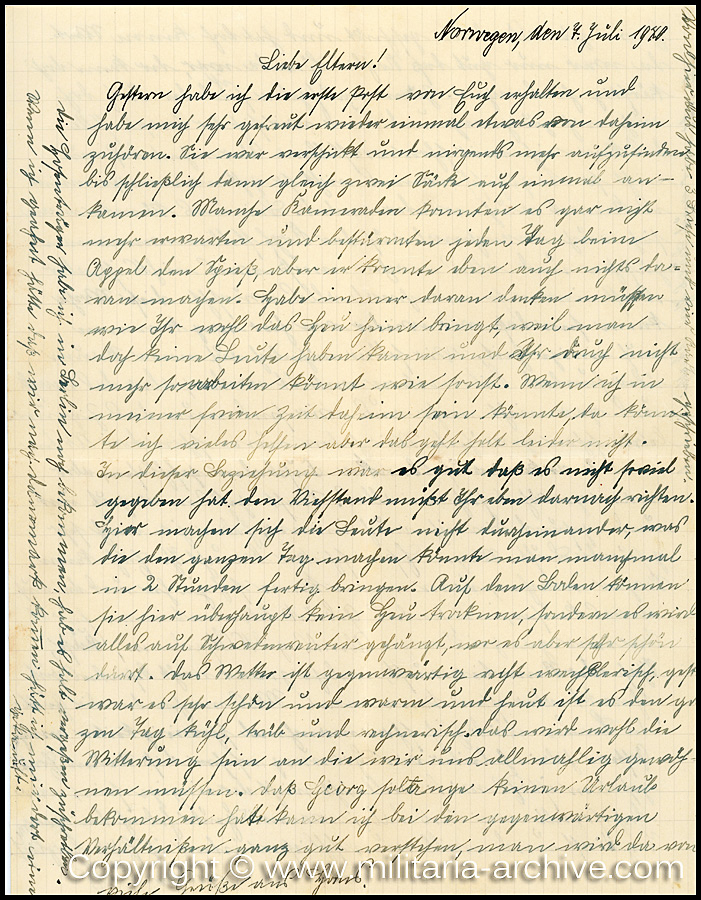 Norwegen, den 7. Juli 1940.
Liebe Eltern!
Gestern habe ich die erste Post von Euch erhalten und
habe mich sehr gefreut wieder einmal etwas von daheim
zuhören. Sie war verschikt und nirgents mehr aufzufinden
bis schließlich dann gleich zwei Säcke auf einmal an-
kamen. Manche Kameraden konnten es gar nicht
mehr erwarten und bestürmten jeden Tag beim
Appel den Spieß aber er konnte eben auch nichts da-
ran machen. Habe immer daran denken müssen
wie Ihr wohl das Heu heim bringt, weil man
doch keine Leute haben kann und Ihr auch nicht
mehr so arbeiten könnt wie sonst. Wenn ich in
meiner freien Zeit daheim sein könnte, da könn-
te ich vieles helfen aber das geht halt leider nicht.
In dieser Beziehung war es gut daß es nicht soviel
gegeben hat. den Viehstand müßt Ihr eben darnach richten.
Hier machen sich die Leute nicht durcheinander, was
die den ganzen Tag machen könnte man manchmal
in 2 Stunden fertig bringen. Auf dem Boden können
sie hier überhaupt kein Heu trocknen, sondern es wird
alles auf Schwedenreuter gehängt, wo es aber sehr schön
dürrt. Das Wetter ist gegenwärtig recht wechslerisch, gest
war es sehr schön und warm und heut ist es den gan
zen Tag kühl, trüb und regnerisch. das wird wohl die
Witterung sein an die wir uns allmählig gewöh-
nen müssen. Daß Georg solange keinen Urlaub
bekommen hat kann ich bei den gegenwärtigen
Verhältnißen ganz gut verstehen, man wird da von
viele Grüße aus Hans!
habe ich in Berlin noch bekommen, hab es
Wenn ich gewußt hätte daß wir nach Dänemark kommen hätte ich
Copyright © www.militaria-archive.com